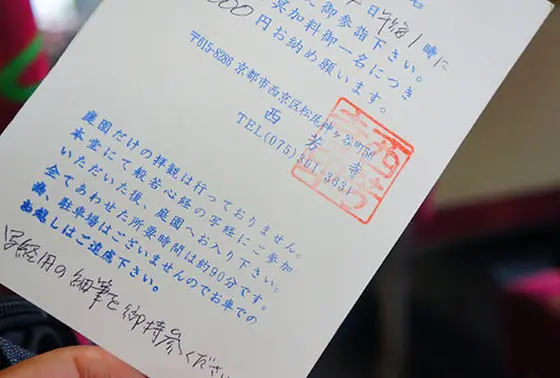 日午後1時に
御参詣下さい。
冥加料御一名につき
000円お納め願います。
〒615-8286 京都市西京区松尾神ヶ谷町56
西芳寺
TEL(075)391-3631
庭園だけの拝観は行っておりません。
本堂にて般若心経の写経にご参加
いただいた後、庭園へお入り下さい。
全てあわせた所要時間は約90分です。
尚、駐車場はございませんのでお車での
お越しはご遠慮下さい。
写経用の細筆を御持参ください